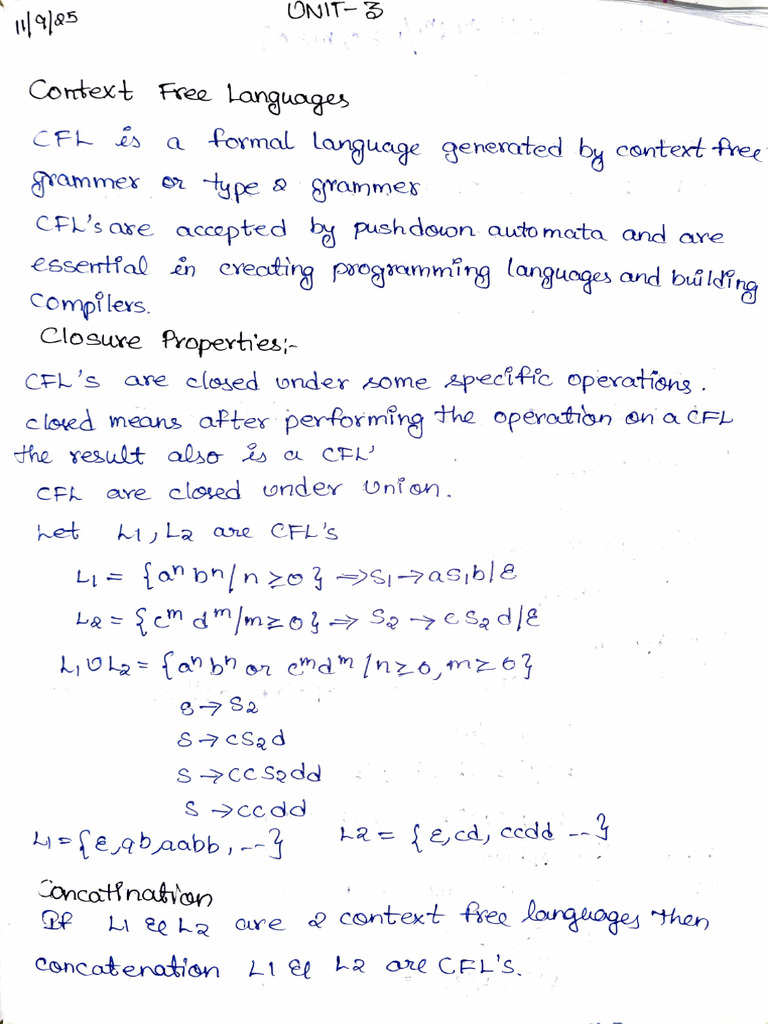 11/9/25
UNIT-3
Context Free Languages
CFL is a formal language generated by context free
grammer or type 2 grammer
CFL's are accepted by pushdown automata and are
essential in creating programming languages and building
compilers.
Closure Properties:-
CFL's are closed under some specific operations.
closed means after performing the operation on a CFL
the result also is a CFL'
CFL are closed under Union.
Let L1, L2 are CFL's
L1 = {aⁿ bⁿ / n ≥ 0} ⇒ S1 → aS1b/ε
L2 = {cᵐ dᵐ / m ≥ 0} ⇒ S2 → cS2d/ε
L1 ∪ L2 = {aⁿ bⁿ or cᵐdᵐ / n ≥ 0, m ≥ 0}
S → S2
S → cS2d
S → ccS2dd
S → ccdd
L1 = {ε, ab, aabb, --} L2 = {ε, cd, ccdd --}
Concatination
If L1 & L2 are 2 context free languages then
concatenation L1 & L2 are CFL's.